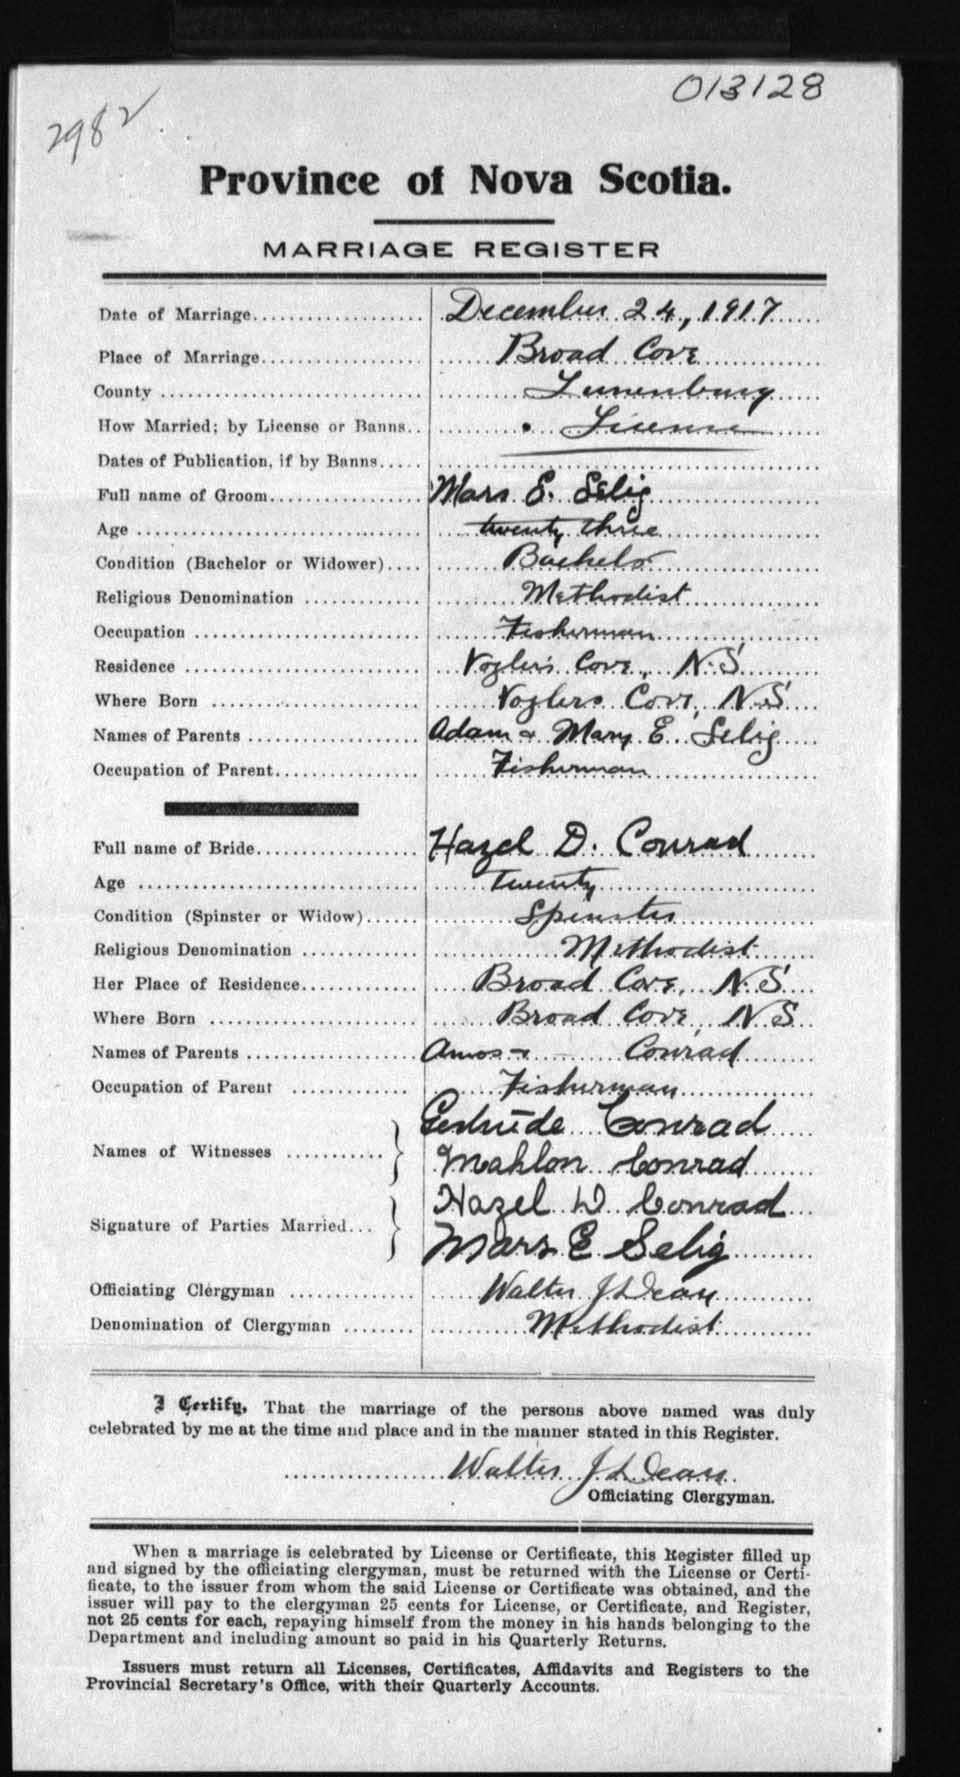 013128
2982
Province of Nova Scotia.
MARRIAGE REGISTER
Date of Marriage. December 24, 1917
Place of Marriage. Broad Cove
County Lunenburg
How Married; by License or Banns. License
Dates of Publication, if by Banns.
Full name of Groom. Mars E. Selig
Age twenty three
Condition (Bachelor or Widower) Bachelor
Religious Denomination Methodist
Occupation Fisherman
Residence Voglers Cove, N.S
Where Born Voglers Cove, N.S
Names of Parents Adam & Mary E. Selig
Occupation of Parent. Fisherman
Full name of Bride. Hazel D. Conrad
Age twenty
Condition (Spinster or Widow) Spinster
Religious Denomination Methodist
Her Place of Residence. Broad Cove, N.S
Where Born Broad Cove, N.S
Names of Parents Amos & - Conrad
Occupation of Parent Fisherman
Gertrude Conrad
Names of Witnesses
Mahlon Conrad
Hazel D Conrad
Signature of Parties Married
Mars E Selig
Officiating Clergyman Walter J Dean
Denomination of Clergyman Methodist
I Certify, That the marriage of the persons above named was duly
celebrated by me at the time and place and in the manner stated in this Register.
Walter J Dean
Officiating Clergyman.
When a marriage is celebrated by License or Certificate, this Register filled up
and signed by the officiating clergyman, must be returned with the License or Certi-
ficate, to the issuer from whom the said License or Certificate was obtained, and the
issuer will pay to the clergyman 25 cents for License, or Certificate, and Register,
not 25 cents for each, repaying himself from the money in his hands belonging to the
Department and including amount so paid in his Quarterly Returns.
Issuers must return all Licenses, Certificates, Affidavits and Registers to the
Provincial Secretary's Office, with their Quarterly Accounts.